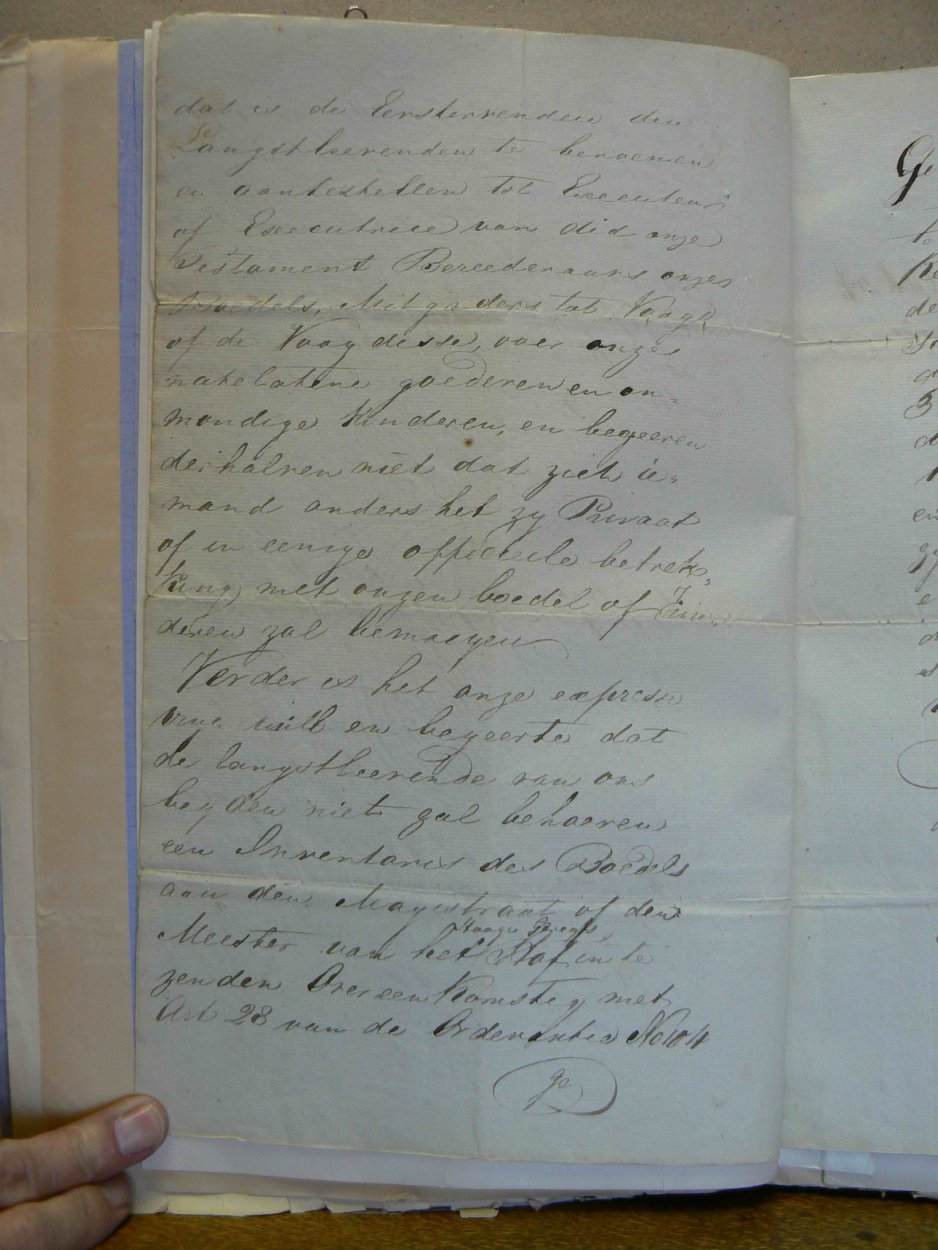 dat is de Eerstervenden den
Langstleevenden te benoemen
en aantestellen tot Executeur
of Executrice van dit onze
Testament Bereederaars onzes
Boedels, Mitgaders tot Voogd
of de Voogdesse, over onze
natelatene goederen en on=
mondige kinderen, en begeeren
derhalven niet dat zich ie=
mand anders het zy Privaat
of in eenige officieele betrek=
king met onzen boedel of Kin=
deren zal bemoeyen
Verder is het onze expresse
will en begeerte dat
de langstleevende van ons
beyden niet zal behoeven
een Inventaris des Boedels
aan den Magistraat of den
Hooge Geregts
Meester van het Hof in te
zenden Overeenkomstig met
Art 28 van de Ordonantie No 104
Ge
te
de
en